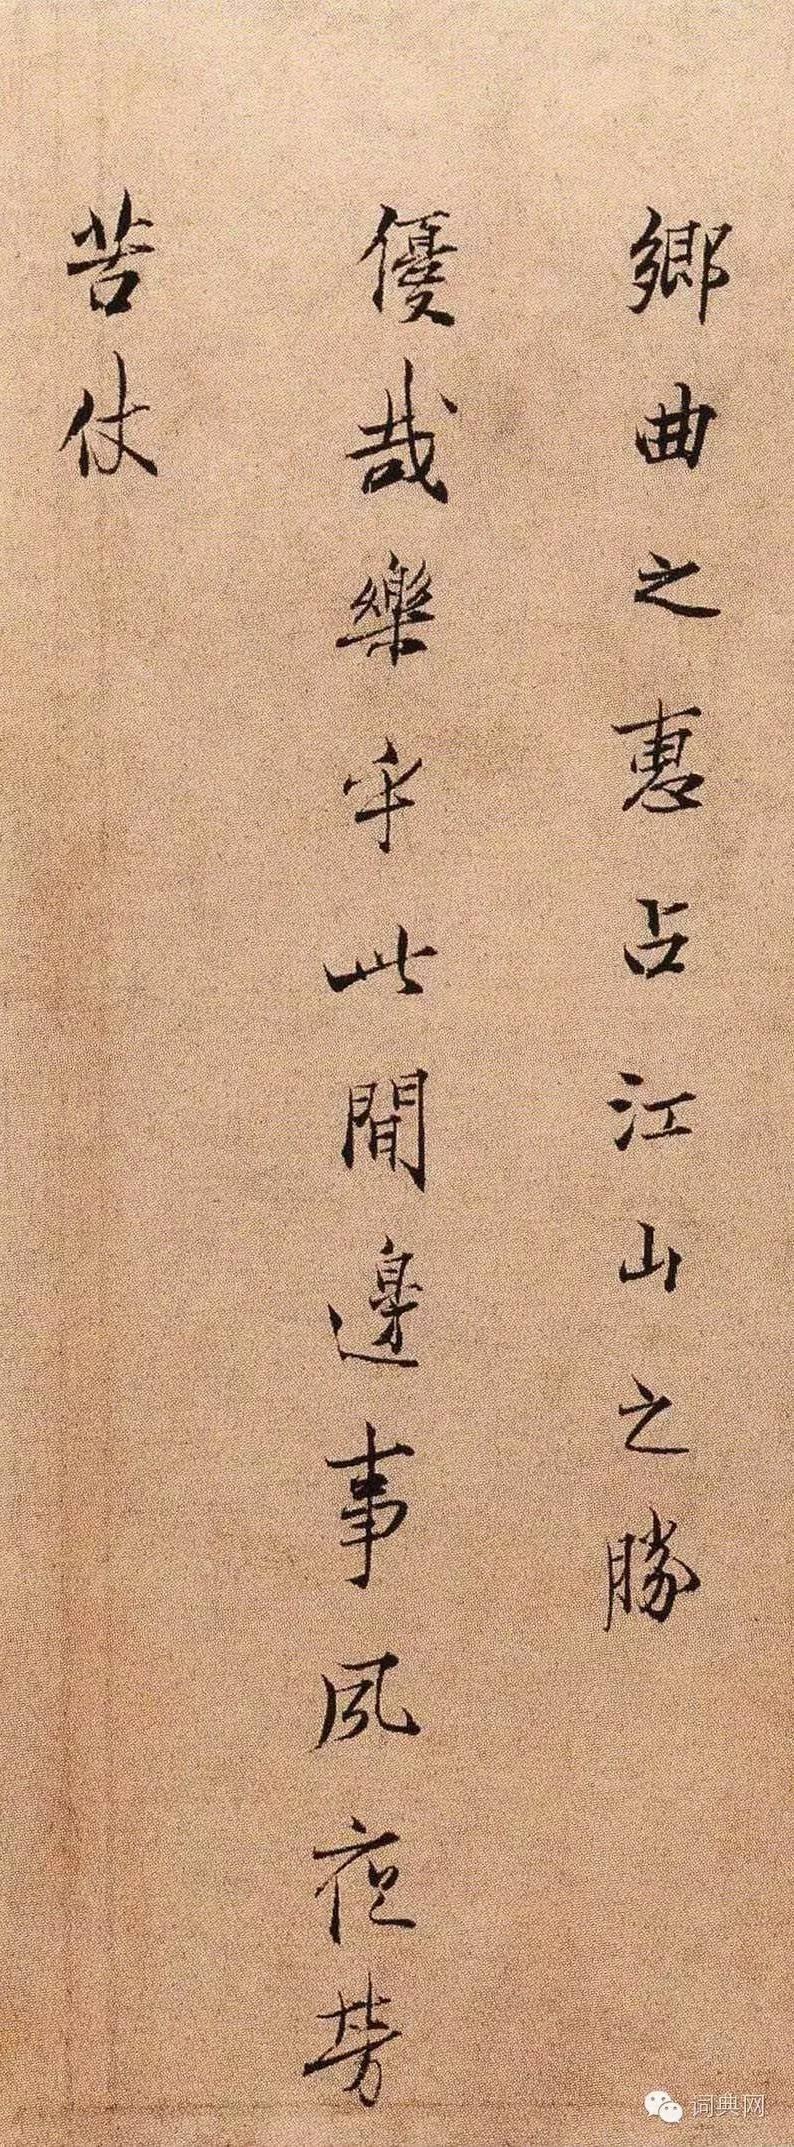 鄉曲之惠占江山之勝
優哉樂乎此間邊事夙夜勞
苦仗
词典网